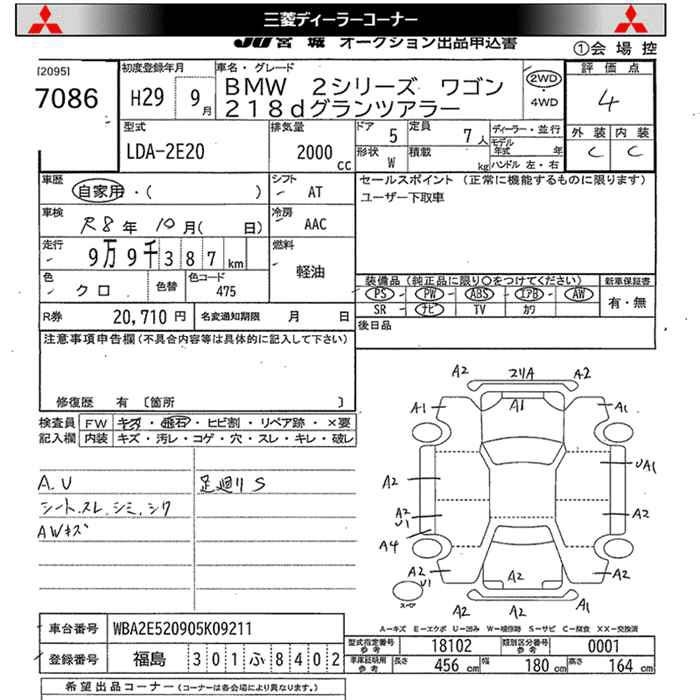 三菱ディーラーコーナー
JU宮城 オークション出品申込書
①会場控
[2095]
7086
初度登録年月
H29 9月
車名・グレード
BMW 2シリーズ ワゴン
218dグランツアラー
2WD
・
4WD
評価点
4
外装 内装
C C
型式
LDA-2E20
排気量
2000 cc
ドア 5
定員 7人
形状 W
積載 kg
ディーラー・並行
モデル年式 年
ハンドル 左・右
車歴
自家用・( )
シフト
AT
車検
R8年10月( 日)
冷房
AAC
走行
9万9千387km
燃料
軽油
色
クロ
色替
色コード
475
R券 20,710円
名変通知期限 月 日
セールスポイント (正常に機能するものに限ります)
ユーザー下取車
装備品(純正品に限り○をつけてください)
PS PW ABS エアB AW
SR ナビ TV カワ
新車保証書
有・無
後日品
注意事項申告欄(不具合内容等は具体的に記入して下さい)
修復歴 有 〔箇所 〕
検査員 FW キズ・飛石・ヒビ割・リペア跡・×要
記入欄 内装 キズ・汚レ・コゲ・穴・スレ・キレ・破レ
A.U
シート.スレ.シミ.シワ
AWキズ
足廻りS
A2 コリA A2
A1 A1 A1
UA1
A2
A2 U1
A2
A4
A2 U1
A2
A2
A2
A2
A1
スペア
A-キズ E-エクボ U-凹み W-補修跡 S-サビ C-腐食 XX-交換済
車台番号 WBA2E520905K09211
登録番号 福島 301ふ8402
型式指定番号 参考 18102
類別区分番号 参考 0001
車庫証明用 参考 長さ 456cm 幅 180cm 高さ 164cm
希望出品コーナー(コーナーは各会場により異なります。)